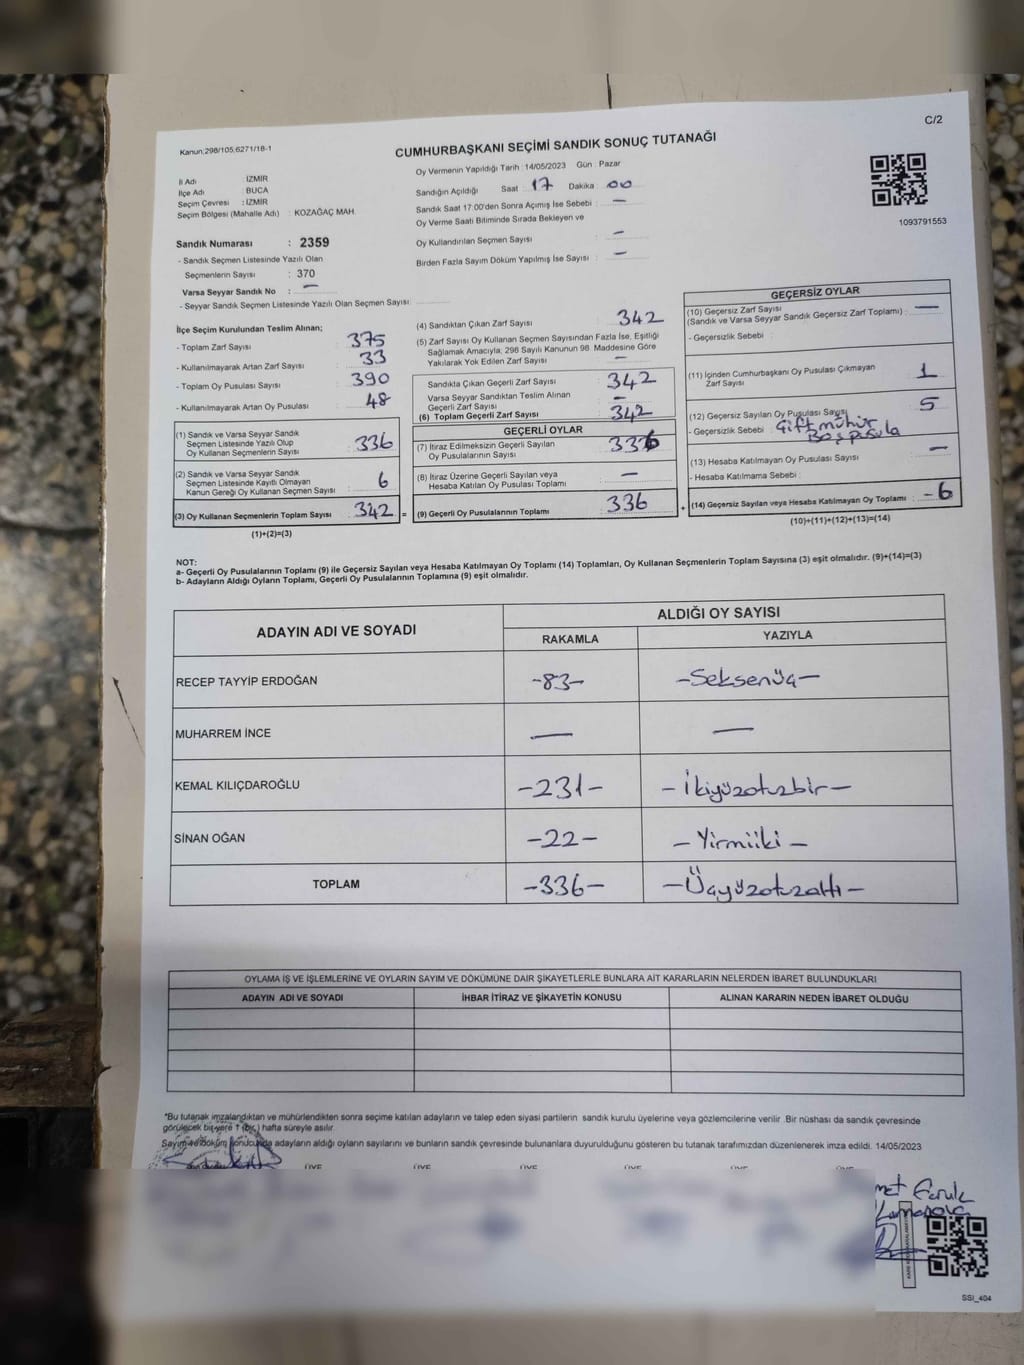 C/2
Kanun:298/105,6271/18-1
CUMHURBAŞKANI SEÇİMİ SANDIK SONUÇ TUTANAĞI
İl Adı : İZMİR
İlçe Adı : BUCA
Seçim Çevresi : İZMİR
Seçim Bölgesi (Mahalle Adı) : KOZAĞAÇ MAH.
Sandık Numarası : 2359
- Sandık Seçmen Listesinde Yazılı Olan
Seçmenlerin Sayısı : 370
Varsa Seyyar Sandık No : —
- Seyyar Sandık Seçmen Listesinde Yazılı Olan Seçmen Sayısı :
Oy Vermenin Yapıldığı Tarih : 14/05/2023 Gün : Pazar
Sandığın Açıldığı Saat : 17 Dakika : 00
Sandık Saat 17:00'den Sonra Açımış İse Sebebi : —
Oy Verme Saati Bitiminde Sırada Bekleyen ve
Oy Kullandırılan Seçmen Sayısı : —
Birden Fazla Sayım Döküm Yapılmış İse Sayısı : —
1093791553
İlçe Seçim Kurulundan Teslim Alınan;
- Toplam Zarf Sayısı : 375
- Kullanılmayarak Artan Zarf Sayısı : 33
- Toplam Oy Pusulası Sayısı : 390
- Kullanılmayarak Artan Oy Pusulası : 48
(1) Sandık ve Varsa Seyyar Sandık
Seçmen Listesinde Yazılı Olup
Oy Kullanan Seçmenlerin Sayısı : 336
(2) Sandık ve Varsa Seyyar Sandık
Seçmen Listesinde Kayıtlı Olmayan
Kanun Gereği Oy Kullanan Seçmen Sayısı : 6
(3) Oy Kullanan Seçmenlerin Toplam Sayısı : 342 =
(1)+(2)=(3)
(4) Sandıktan Çıkan Zarf Sayısı : 342
(5) Zarf Sayısı Oy Kullanan Seçmen Sayısından Fazla İse, Eşitliği
Sağlamak Amacıyla; 298 Sayılı Kanunun 98. Maddesine Göre
Yakılarak Yok Edilen Zarf Sayısı : —
Sandıkta Çıkan Geçerli Zarf Sayısı : 342
Varsa Seyyar Sandıktan Teslim Alınan
Geçerli Zarf Sayısı : —
(6) Toplam Geçerli Zarf Sayısı : 342
GEÇERLİ OYLAR
(7) İtiraz Edilmeksizin Geçerli Sayılan
Oy Pusulalarının Sayısı : 336
(8) İtiraz Üzerine Geçerli Sayılan veya
Hesaba Katılan Oy Pusulası Toplamı : —
(9) Geçerli Oy Pusulalarının Toplamı : 336 +
GEÇERSİZ OYLAR
(10) Geçersiz Zarf Sayısı
(Sandık ve Varsa Seyyar Sandık Geçersiz Zarf Toplamı) : —
- Geçersizlik Sebebi :
(11) İçinden Cumhurbaşkanı Oy Pusulası Çıkmayan
Zarf Sayısı : 1
(12) Geçersiz Sayılan Oy Pusulası Sayısı : 5
- Geçersizlik Sebebi : Çift mühür
Boş pusula
(13) Hesaba Katılmayan Oy Pusulası Sayısı : —
- Hesaba Katılmama Sebebi :
(14) Geçersiz Sayılan veya Hesaba Katılmayan Oy Toplamı : -6
(10)+(11)+(12)+(13)=(14)
NOT:
a- Geçerli Oy Pusulalarının Toplamı (9) ile Geçersiz Sayılan veya Hesaba Katılmayan Oy Toplamı (14) Toplamları, Oy Kullanan Seçmenlerin Toplam Sayısına (3) eşit olmalıdır. (9)+(14)=(3)
b- Adayların Aldığı Oyların Toplamı, Geçerli Oy Pusulalarının Toplamına (9) eşit olmalıdır.
ADAYIN ADI VE SOYADI ALDIĞI OY SAYISI
RAKAMLA YAZIYLA
RECEP TAYYİP ERDOĞAN -83- -Seksenüç-
MUHARREM İNCE — —
KEMAL KILIÇDAROĞLU -231- -İkiyüzotuzbir-
SİNAN OĞAN -22- -Yirmiiki-
TOPLAM -336- -Üçyüzotuzaltı-
OYLAMA İŞ VE İŞLEMLERİNE VE OYLARIN SAYIM VE DÖKÜMÜNE DAİR ŞİKAYETLERLE BUNLARA AİT KARARLARIN NELERDEN İBARET BULUNDUKLARI
ADAYIN ADI VE SOYADI İHBAR İTİRAZ VE ŞİKAYETİN KONUSU ALINAN KARARIN NEDEN İBARET OLDUĞU
*Bu tutanak imzalandıktan ve mühürlendikten sonra seçime katılan adayların ve talep eden siyasi partilerin sandık kurulu üyelerine veya gözlemcilerine verilir. Bir nüshası da sandık çevresinde
görülecek bir yere 1 (bir) hafta süreyle asılır.
Sayım ve döküm sonucunda adayların aldığı oyların sayılarını ve bunların sandık çevresinde bulunanlara duyurulduğunu gösteren bu tutanak tarafımızdan düzenlenerek imza edildi. 14/05/2023
ÜYE ÜYE ÜYE ÜYE ÜYE ÜYE
SSI_404